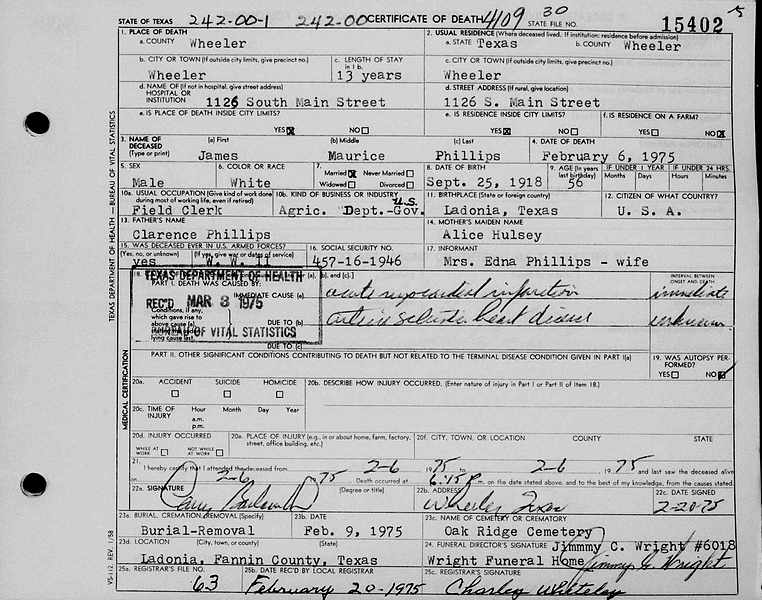 STATE OF TEXAS 242-00-1 242-00 CERTIFICATE OF DEATH 4109 30 STATE FILE NO. 15402 5
1. PLACE OF DEATH 2. USUAL RESIDENCE (Where deceased lived. If institution: residence before admission)
a. COUNTY Wheeler a. STATE Texas b. COUNTY Wheeler
b. CITY OR TOWN (If outside city limits, give precinct no.) c. LENGTH OF STAY in 1 b. c. CITY OR TOWN (If outside city limits, give precinct no.)
Wheeler 13 years Wheeler
d. NAME OF (If not in hospital, give street address) HOSPITAL OR INSTITUTION d. STREET ADDRESS (If rural, give location)
1126 South Main Street 1126 S. Main Street
e. IS PLACE OF DEATH INSIDE CITY LIMITS? e. IS RESIDENCE INSIDE CITY LIMITS? f. IS RESIDENCE ON A FARM?
YES NO YES NO YES NO
3. NAME OF DECEASED (Type or print) (a) First (b) Middle (c) Last 4. DATE OF DEATH
James Maurice Phillips February 6, 1975
5. SEX 6. COLOR OR RACE 7. Married Never Married Widowed Divorced 8. DATE OF BIRTH 9. AGE (In years last birthday) IF UNDER 1 YEAR Months Days IF UNDER 24 HRS. Hours Minutes
Male White Sept. 25, 1918 56
10a. USUAL OCCUPATION (Give kind of work done during most of working life, even if retired) 10b. KIND OF BUSINESS OR INDUSTRY 11. BIRTHPLACE (State or foreign country) 12. CITIZEN OF WHAT COUNTRY?
Field Clerk Agric. U.S. Dept.-Gov. Ladonia, Texas U. S. A.
13. FATHER'S NAME 14. MOTHER'S MAIDEN NAME
Clarence Phillips Alice Hulsey
15. WAS DECEASED EVER IN U.S. ARMED FORCES? (Yes, no, or unknown) (If yes, give war or dates of service) 16. SOCIAL SECURITY NO. 17. INFORMANT
yes W. W. II 457-16-1946 Mrs. Edna Phillips - wife
TEXAS DEPARTMENT OF HEALTH
REC'D MAR 3 1975
BUREAU OF VITAL STATISTICS
PART I. DEATH WAS CAUSED BY: INTERVAL BETWEEN ONSET AND DEATH
IMMEDIATE CAUSE (a) acute myocardial infarction immediate
Conditions, if any, which gave rise to above cause (a) lying cause last. DUE TO (b) heart disease unknown
DUE TO (c)
PART II. OTHER SIGNIFICANT CONDITIONS CONTRIBUTING TO DEATH BUT NOT RELATED TO THE TERMINAL DISEASE CONDITION GIVEN IN PART I(a) 19. WAS AUTOPSY PERFORMED? YES NO
20a. ACCIDENT SUICIDE HOMICIDE 20b. DESCRIBE HOW INJURY OCCURRED. (Enter nature of injury in Part I or Part II of Item 18.)
20c. TIME OF INJURY Hour Month Day Year a.m. p.m.
20d. INJURY OCCURRED WHILE AT WORK NOT WHILE AT WORK 20e. PLACE OF INJURY (e.g., in or about home, farm, factory, street, office building, etc.) 20f. CITY, TOWN, OR LOCATION COUNTY STATE
21. I hereby certify that I attended the deceased from 2-6 1975 to 2-6 1975 and last saw the deceased alive
on 2-6 1975 Death occurred at 6:15 P.m. on the date stated above, and to the best of my knowledge, from the causes stated.
22a. SIGNATURE (Degree or title) 22b. ADDRESS Wheeler Texas 22c. DATE SIGNED 2-20-75
23a. BURIAL, CREMATION, REMOVAL (Specify) 23b. DATE 23c. NAME OF CEMETERY OR CREMATORY
Burial-Removal Feb. 9, 1975 Oak Ridge Cemetery
23d. LOCATION (City, town, or county) (State) 24. FUNERAL DIRECTOR'S SIGNATURE Jimmmy C. Wright #6018
Ladonia, Fannin County, Texas Wright Funeral Home Jimmy C. Wright
25a. REGISTRAR'S FILE NO. 25b. DATE REC'D BY LOCAL REGISTRAR 25c. REGISTRAR'S SIGNATURE
63 February 20-1975 Charley Whiteley
TEXAS DEPARTMENT OF HEALTH—BUREAU OF VITAL STATISTICS
MEDICAL CERTIFICATION
VS-112 REV. 1/58